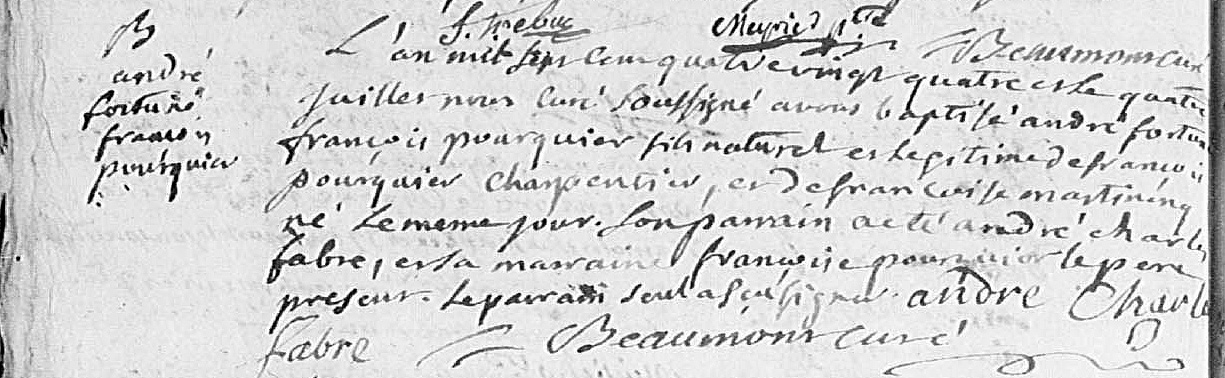 B
andré
fortuné
françois
pourquier
f. trebuc Meyrie ptre Beaumont curé
L'an mil sept cent quatrevingt quatre et le quatre
juillet nous curé soussigné avons baptisé andré fortuné
françois pourquier fils naturel et legitime de françois
pourquier charpentier, et de françoise martinenq
né le meme jour. Son parrain a eté andré charles
fabre, et sa marraine françoise pourquier le pere
present. le parrain seul a sçu signer. andre Charle
fabre Beaumont curé